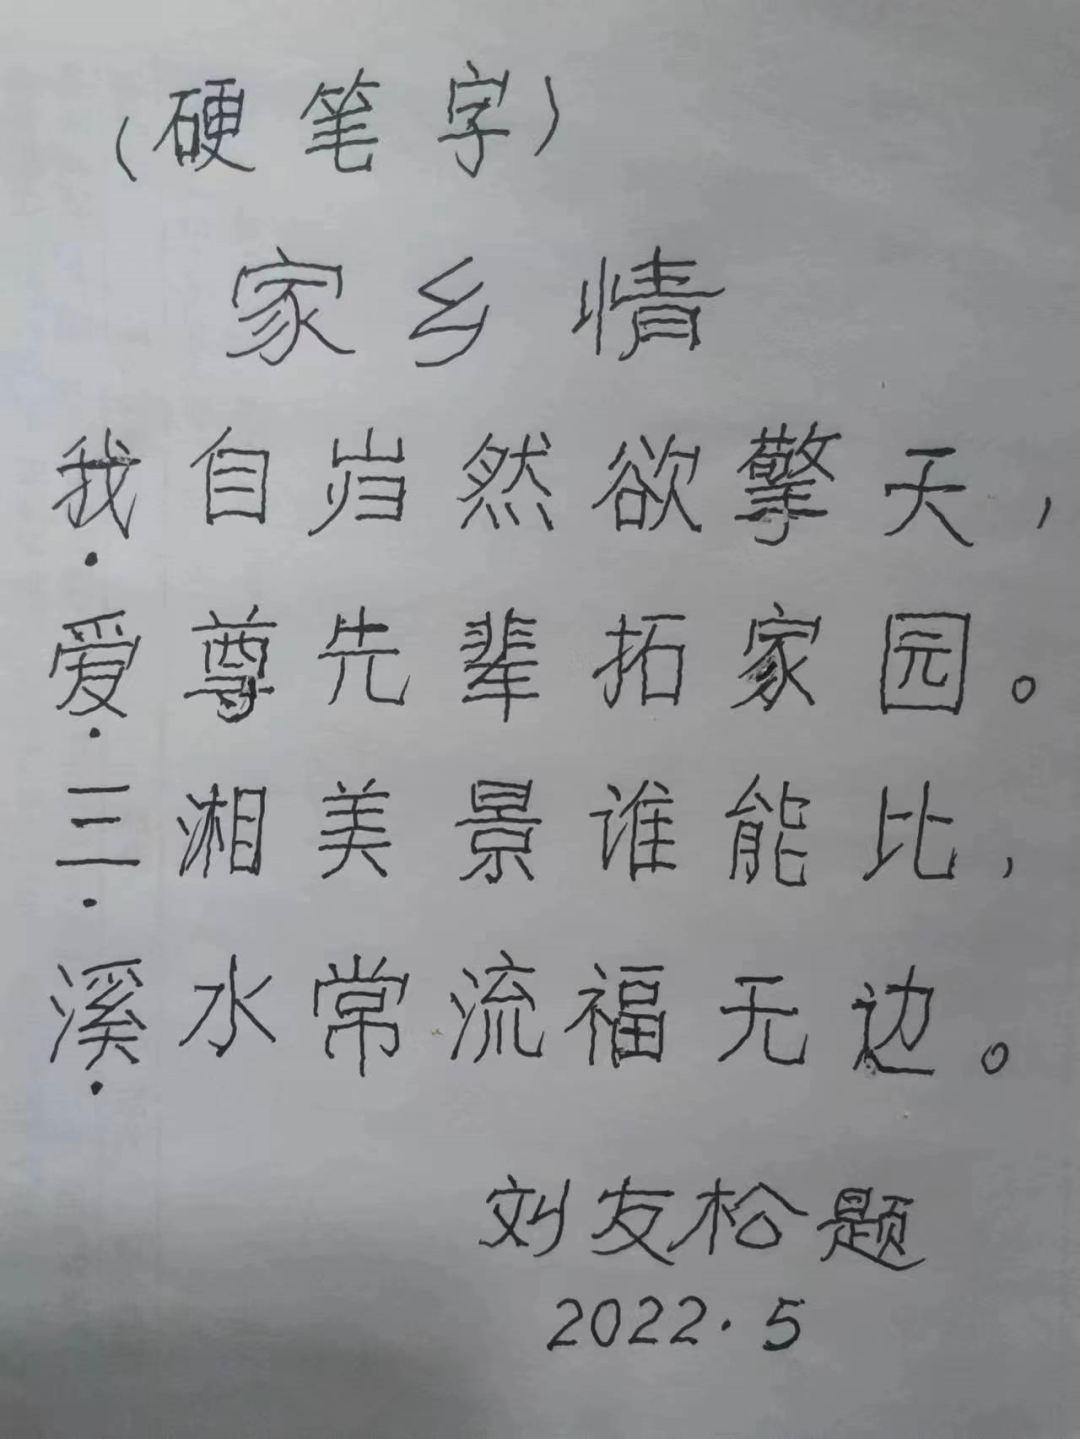 （硬笔字）
家乡情
我自岿然欲擎天，
爱尊先辈拓家园。
三湘美景谁能比，
溪水常流福无边。
刘友松题
2022.5